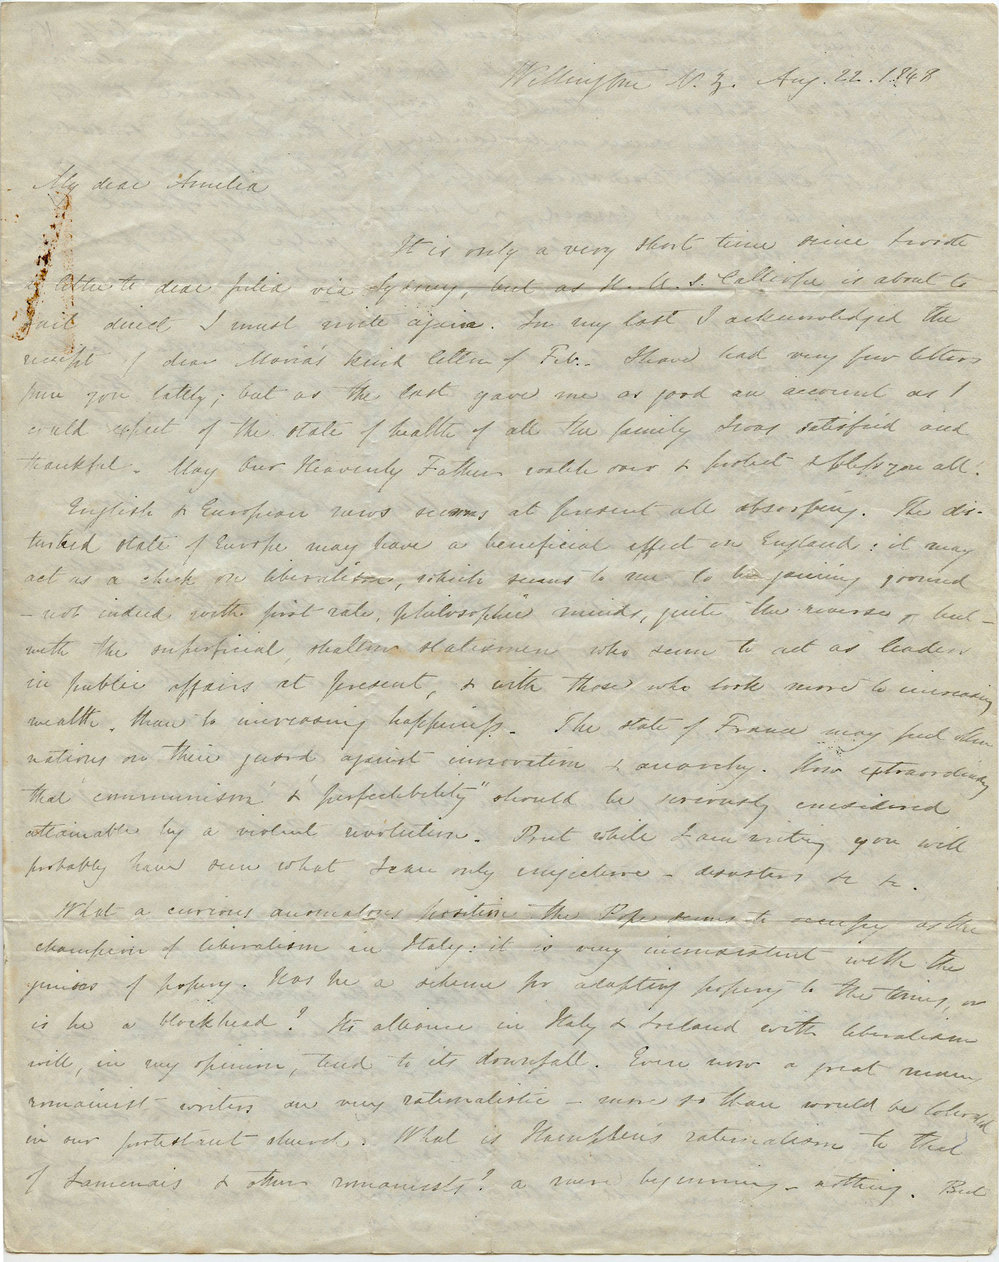 Wellington N.Z. Aug. 22. 1848
My dear Amelia
It is only a very short time since I wrote
a letter to dear Julia via Sydney, but as H.M.S. Calliope is about to
sail direct I must write again. In my last I acknowledged the
receipt of dear Maria's kind letter of Feb.. I have had very few letters
from you lately; but as the last gave me as good an account as I
could expect of the state of health of all the family I was satisfied and
thankful. May Our Heavenly Father watch over & protect & bless you all.
English & European news seems at present all absorbing. The dis-
turbed state of Europe may have a beneficial effect on England: it may
act as a check on liberalism, which seems to me to be gaining ground
- not indeed with first rate, philosophic minds, quite the reverse, but -
with the superficial, shallow statesmen who seem to act as leaders
in public affairs at present, & with those who look more to increasing
wealth than to increasing happiness. The state of France may put other
nations on their guard against innovation & anarchy. How extraordinary
that "communism" & "perfectibility" should be seriously considered
attainable by a violent revolution. But while I am writing you will
probably have seen what I can only conjecture - disasters &c &c.
What a curious anomalous position the Pope seems to occupy as the
champion of liberalism in Italy: it is very inconsistent with the
genius of popery. Has he a scheme for adapting popery to the times, or
is he a blockhead? Its alliance in Italy & Ireland with liberalism
will, in my opinion, tend to its downfall. Even now a great many
romanist writers are very rationalistic - more so than would be tolerated
in our protestant church. What is Hampden's rationalism to that
of Lamenais & other romanists? a mere beginning - nothing. But